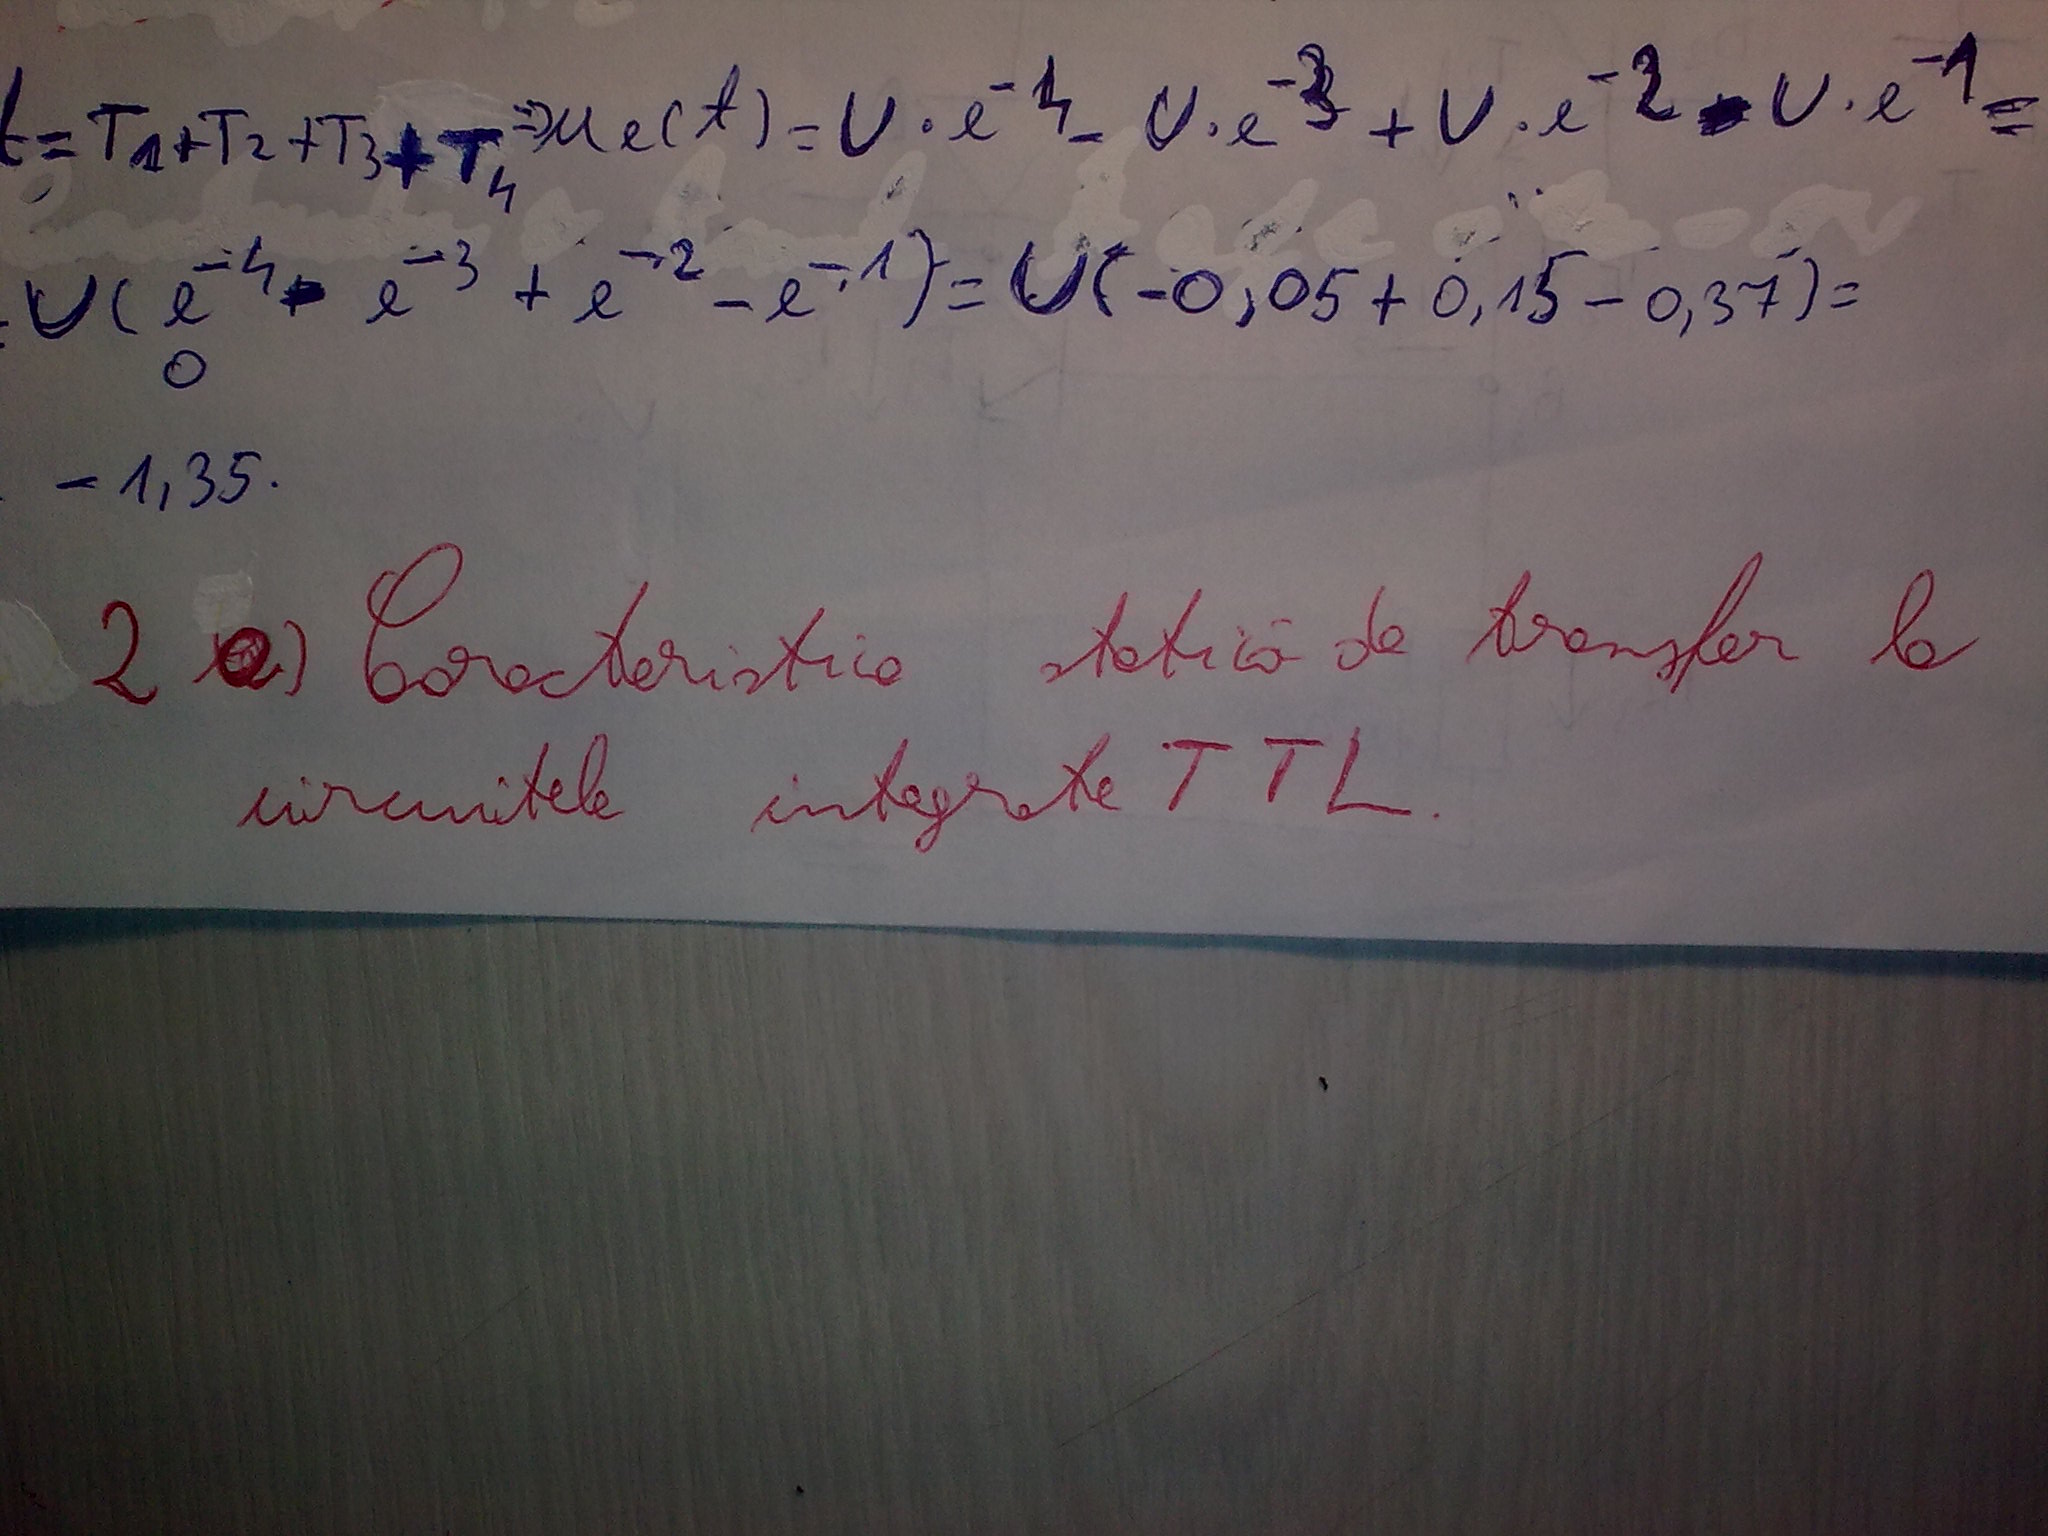 t = T1+T2+T3+T4 ⇒ ue(t) = U·e^-4 - U·e^-3 + U·e^-2 - U·e^-1 =
= U(e^-4 - e^-3 + e^-2 - e^-1) = U(-0,05 + 0,15 - 0,37) =
0
= -1,35.
2 a) Caracteristica statică de transfer la
circuitele integrate TTL.